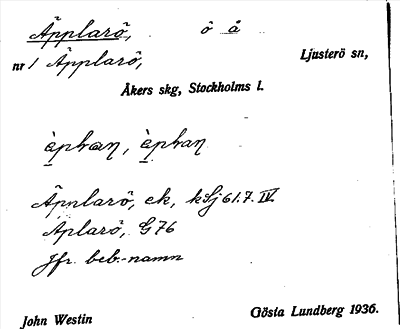 Äpplarö, ö å
nr 1 Äpplarö, Ljusterö sn,
Åkers skg, Stockholms l.
Äpplarö, ek, kSj 61.7. IV.
Äplarö, G 76
Jfr beb.-namn
John Westin Gösta Lundberg 1936.